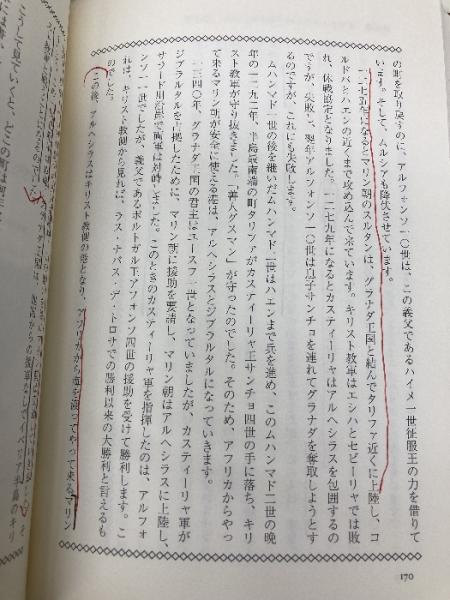 の町を取り戻すのに、アルフォンソ一〇世は、この義父であるハイメ一世征服王の力を借りて
います。そして、ムルシアも降伏させています。
一二七五年になるとマリン朝のスルタンは、グラナダ王国と結んでタリファ近くに上陸し、コ
ルドバとハエンの近くまで攻め込んで来ています。キリスト教軍はエシハとセビーリャでは敗
れ、休戦協定となりました。一二七九年になるとカスティーリャはアルヘシラスを包囲するの
ですが、失敗し、翌年アルフォンソ一〇世は息子サンチョを連れてグラナダを奪取しようとす
るのですが、これにも失敗します。
ムハンマド一世の後を継いだムハンマド二世はハエンまで兵を進め、このムハンマド二世の晩
年の一二九二年、半島最南端の町タリファがカスティーリャ王サンチョ四世の手に落ち、キリ
スト教軍が守り抜きました。「善人グスマン」が守ったのでした。そのため、アフリカからやっ
て来るマリン朝が安全に使える港は、アルヘシラスとジブラルタルになっていきます。
一三四〇年、グラナダ王国の君主はユースフ一世となっていましたが、カスティーリャ軍が
ジブラルタルを占拠したために、マリン朝に援助を要請し、マリン朝はアルヘシラスに上陸し、
サラード川沿岸で両軍は対峙しました。このときのカスティーリャ軍を指揮したのは、アルフォ
ンソ一一世でしたが、義父であるポルトガル王アフォンソ四世の援助を受けて勝利します。こ
れは、キリスト教側から見れば、ラス・ナバス・デ・トロサでの勝利以来の大勝利と言えるも
のでした。
この後、アルヘシラスはキリスト教側の港となり、アフリカから海を渡ってやって来るマリン
170